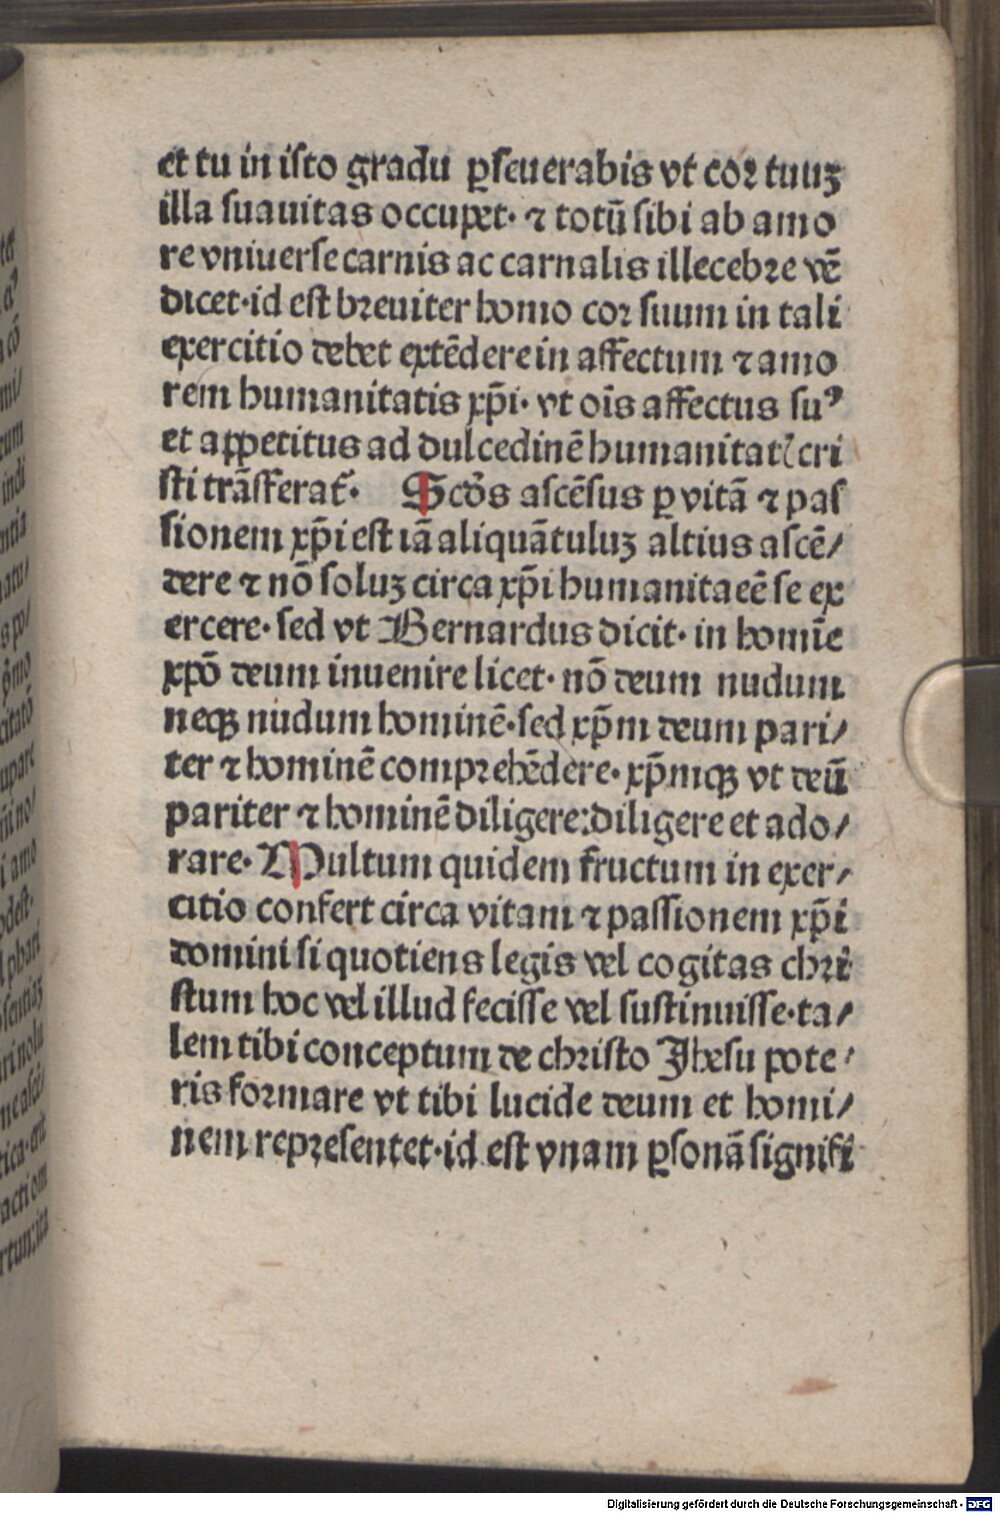 et tu in isto gradu ꝑseuerabis vt cor tuuꝫ
illa suauitas occupet· ⁊ totū sibi ab amo
re vniuerse carnis ac carnalis illecebre vē
dicet·id est breuiter homo cor suum in tali
exercitio debet extēdere in affectum ⁊ amo
rem humanitatis xp̄i· vt oīs affectus suꝰ
et appetitus ad dulcedinē humanitatꝭ cri
sti trāsferat᷑· Scd̄s ascēsus ꝑ vitā ⁊ pas
sionem xp̄i est iā aliquātuluꝫ altius ascē/
dere ⁊ nō soluꝫ circa xp̄i humanitaeē se ex
ercere· sed vt Bernardus dicit· in homīe
xp̄o deum inuenire licet· nō deum nudum
neqꝫ nudum hominē·sed xp̄m deum pari/
ter ⁊ hominē comprehēdere· xp̄mqꝫ vt deū
pariter ⁊ hominē diligere:diligere et ado/
rare· Multum quidem fructum in exer/
citio confert circa vitam ⁊ passionem xp̄i
domini si quotiens legis vel cogitas chri
stum hoc vel illud fecisse vel sustinuisse·ta/
lem tibi conceptum de christo Jhesu pote/
ris formare vt tibi lucide deum et homi/
nem representet·id est vnam ꝑsonā signifi
Digitalisierung gefördert durch die Deutsche Forschungsgemeinschaft - DFG